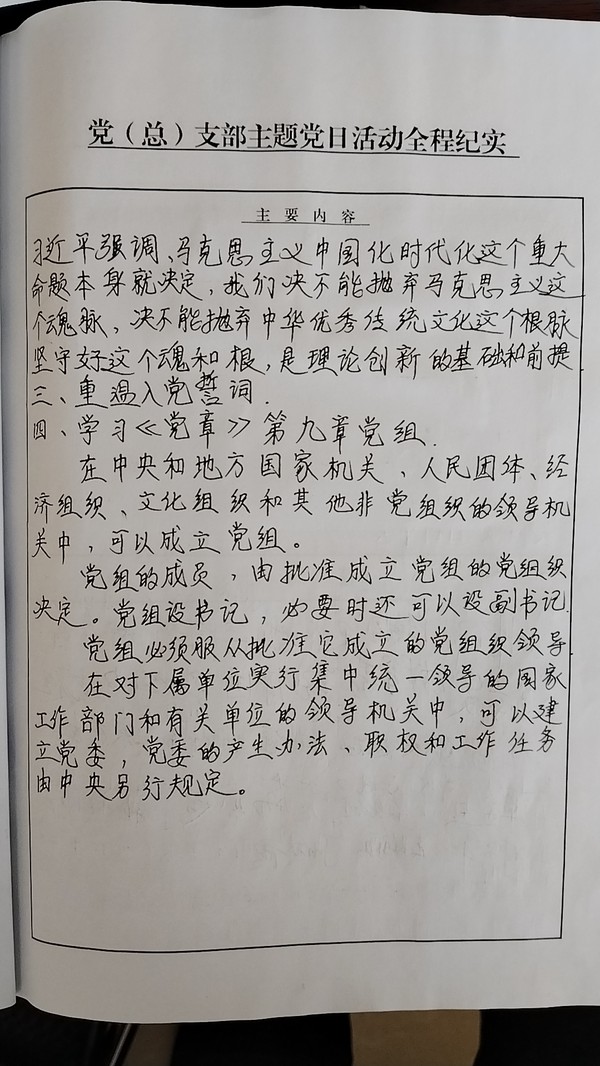 党（总）支部主题党日活动全程纪实
主要内容
习近平强调、马克思主义中国化时代化这个重大
命题本身就决定，我们决不能抛弃马克思主义这
个魂脉、决不能抛弃中华优秀传统文化这个根脉
坚守好这个魂和根，是理论创新的基础和前提.
三、重温入党誓词.
四、学习《党章》第九章党组.
在中央和地方国家机关、人民团体、经
济组织、文化组织和其他非党组织的领导机
关中，可以成立党组。
党组的成员，由批准成立党组的党组织
决定。党组设书记，必要时还可以设副书记.
党组必须服从批准它成立的党组织领导.
在对下属单位实行集中统一领导的国家
工作部门和有关单位的领导机关中，可以建
立党委，党委的产生办法、职权和工作任务
由中央另行规定。